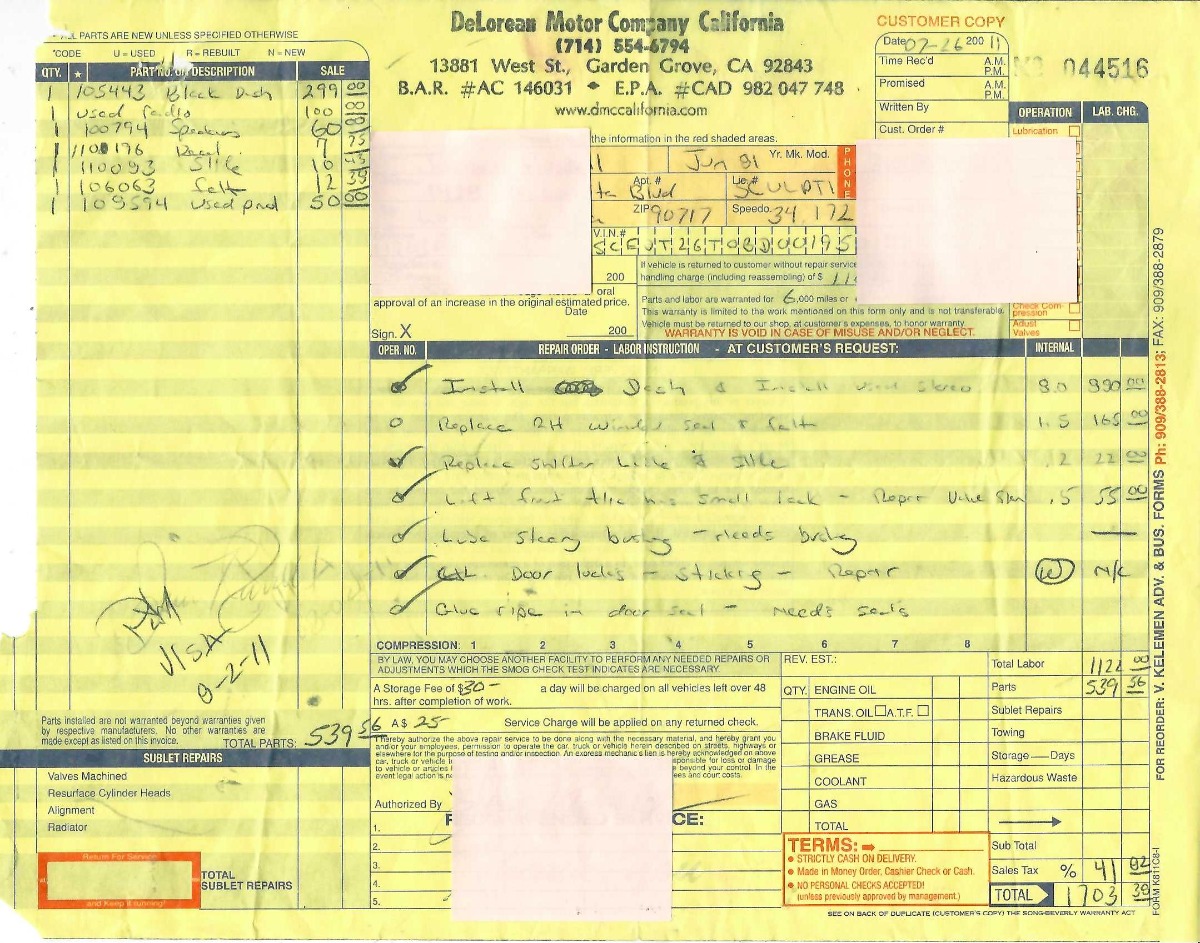 ALL PARTS ARE NEW UNLESS SPECIFIED OTHERWISE
*CODE U = USED R = REBUILT N = NEW
QTY. ★ PART NO. OR DESCRIPTION SALE
1 105443 Black Dash 299 00
1 used radio 100 00
1 100794 Speakers 60 00
1 110093 10
1 106063 felt 12 39
1 109594 used 50 00
DeLorean Motor Company California
(714) 554-6794
13881 West St., Garden Grove, CA 92843
B.A.R. #AC 146031 • E.P.A. #CAD 982 047 748
www.dmccalifornia.com
CUSTOMER COPY
Date 07-26 200 11
Time Rec'd A.M. P.M.
Promised A.M. P.M.
Written By
Cust. Order #
044516
OPERATION LAB. CHG.
Lubrication
the information in the red shaded areas.
Jun 81 Yr. Mk. Mod.
PHONE
Apt. # Blvd Lic. #
ZIP 90717 Speedo. 34,172
V.I.N.#
If vehicle is returned to customer without repair service
200 handling charge (including reassembling) of $
oral
approval of an increase in the original estimated price.
Date
Sign. X 200
Parts and labor are warranted for 6,000 miles or
This warranty is limited to the work mentioned on this form only and is not transferable.
Vehicle must be returned to our shop, at customer's expenses, to honor warranty.
WARRANTY IS VOID IN CASE OF MISUSE AND/OR NEGLECT.
Check Compression
Adjust Valves
OPER. NO. REPAIR ORDER - LABOR INSTRUCTION - AT CUSTOMER'S REQUEST: INTERNAL
Install Dash & Install used stereo 8.0 880 00
Replace RH window seal & felt 1.5 165 00
Replace shifter .2 22 00
Left front tire has small leak - Repair Valve Stem .5 55 00
Lube steering bushing - needs bushing —
Door locks - Sticking - Repair W N/C
Glue ripe in door seal - needs seals
COMPRESSION: 1 2 3 4 5 6 7 8
BY LAW, YOU MAY CHOOSE ANOTHER FACILITY TO PERFORM ANY NEEDED REPAIRS OR
ADJUSTMENTS WHICH THE SMOG CHECK TEST INDICATES ARE NECESSARY.
A Storage Fee of $30- a day will be charged on all vehicles left over 48
hrs. after completion of work.
A $ 25- Service Charge will be applied on any returned check.
I hereby authorize the above repair service to be done along with the necessary material, and hereby grant you
and/or your employees, permission to operate the car, truck or vehicle herein described on streets, highways or
elsewhere for the purpose of testing and/or inspection. An express mechanic's lien is hereby acknowledged on above
car, truck or vehicle responsible for loss or damage
to vehicle or articles beyond your control. In the
event legal action is fees and court costs.
Authorized By
CE:
1.
2.
3.
4.
5.
VISA
8-2-11
Parts installed are not warranted beyond warranties given
by respective manufacturers. No other warranties are
made except as listed on this invoice. TOTAL PARTS: 539 56
SUBLET REPAIRS
Valves Machined
Resurface Cylinder Heads
Alignment
Radiator
Return For Service
and Keep it running!
TOTAL SUBLET REPAIRS
REV. EST.:
QTY. ENGINE OIL
TRANS. OIL A.T.F.
BRAKE FLUID
GREASE
COOLANT
GAS
TOTAL
TERMS:
• STRICTLY CASH ON DELIVERY.
• Made in Money Order, Cashier Check or Cash.
• NO PERSONAL CHECKS ACCEPTED!
(unless previously approved by management.)
Total Labor 1122 00
Parts 539 56
Sublet Repairs
Towing
Storage — Days
Hazardous Waste
Sub Total
Sales Tax % 41 82
TOTAL 1703 38
SEE ON BACK OF DUPLICATE (CUSTOMER'S COPY) THE SONG-BEVERLY WARRANTY ACT
FOR REORDER: V. KELEMEN ADV. & BUS. FORMS Ph: 909/388-2813; FAX: 909/388-2879
FORM K811C8-I